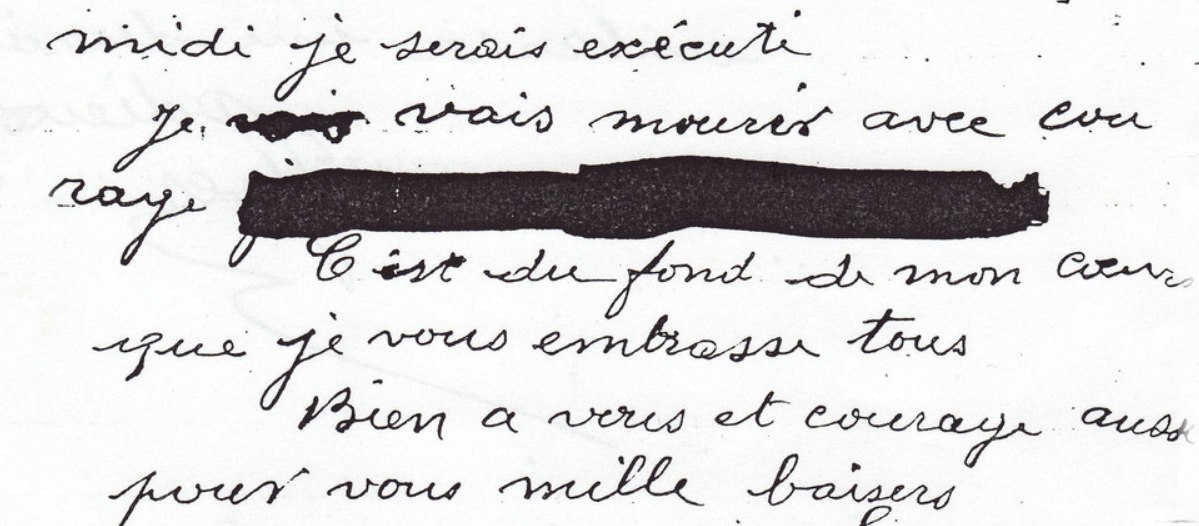 midi je serais exécuté
Je vais mourir avec cou
rage
C'est du fond de mon cœur
que je vous embrasse tous
Bien a vous et courage aussi
pour vous mille baisers